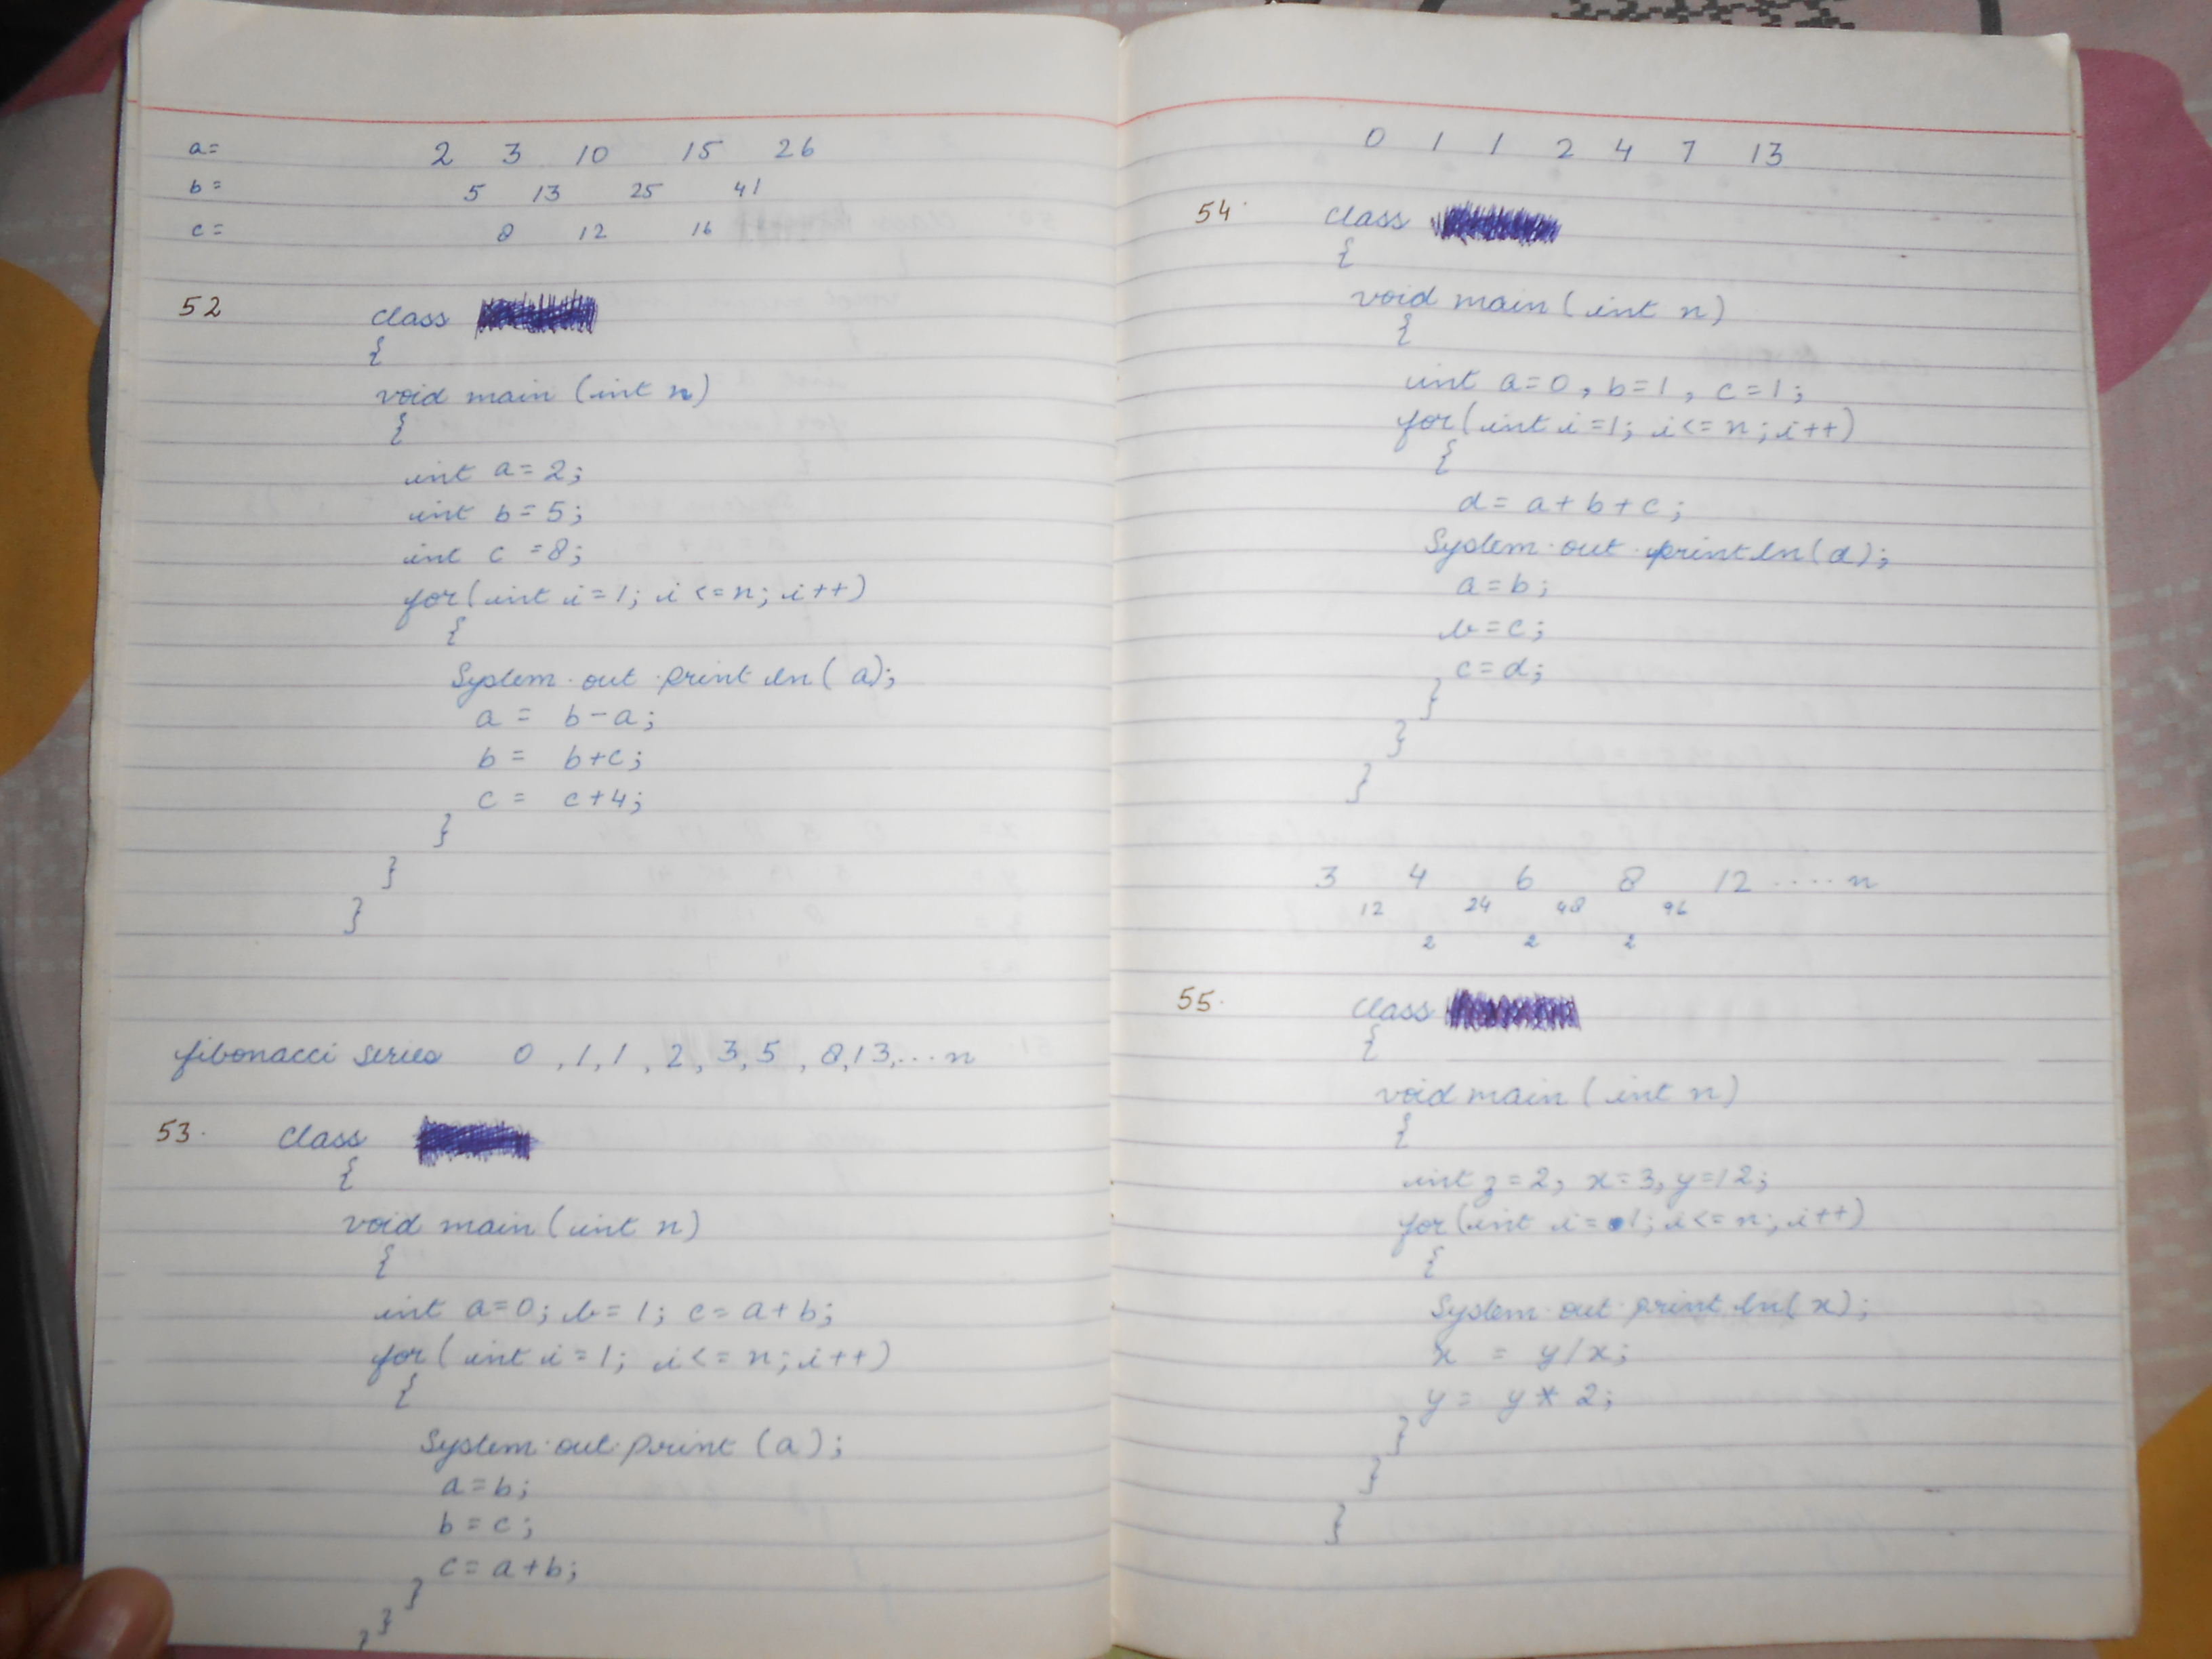 a= 2 3 10 15 26
b= 5 13 25 41
c= 8 12 16
52 class
{
void main (int n)
{
int a=2;
int b=5;
int c=8;
for(int i=1; i<=n; i++)
{
System.out.println(a);
a = b-a;
b = b+c;
c = c+4;
}
}
}
fibonacci series 0 ,1,1, 2, 3,5 ,8,13,...n
53. Class
{
void main (int n)
{
int a=0; b=1; c=a+b;
for( int i=1; i<=n; i++)
{
System.out.print (a);
a=b;
b=c;
c=a+b;
}
}
}
0 1 1 2 4 7 13
54. class
{
void main (int n)
{
int a=0, b=1, c=1;
for(int i=1; i<=n; i++)
{
d= a+b+c;
System.out.println(d);
a=b;
b=c;
c=d;
}
}
}
3 4 6 8 12 ....n
12 24 48 96
2 2 2
55. class
{
void main (int n)
{
int z=2, x=3, y=12;
for(int i=1; i<=n; i++)
{
System.out.println(x);
x = y/x;
y= y*2;
}
}
}